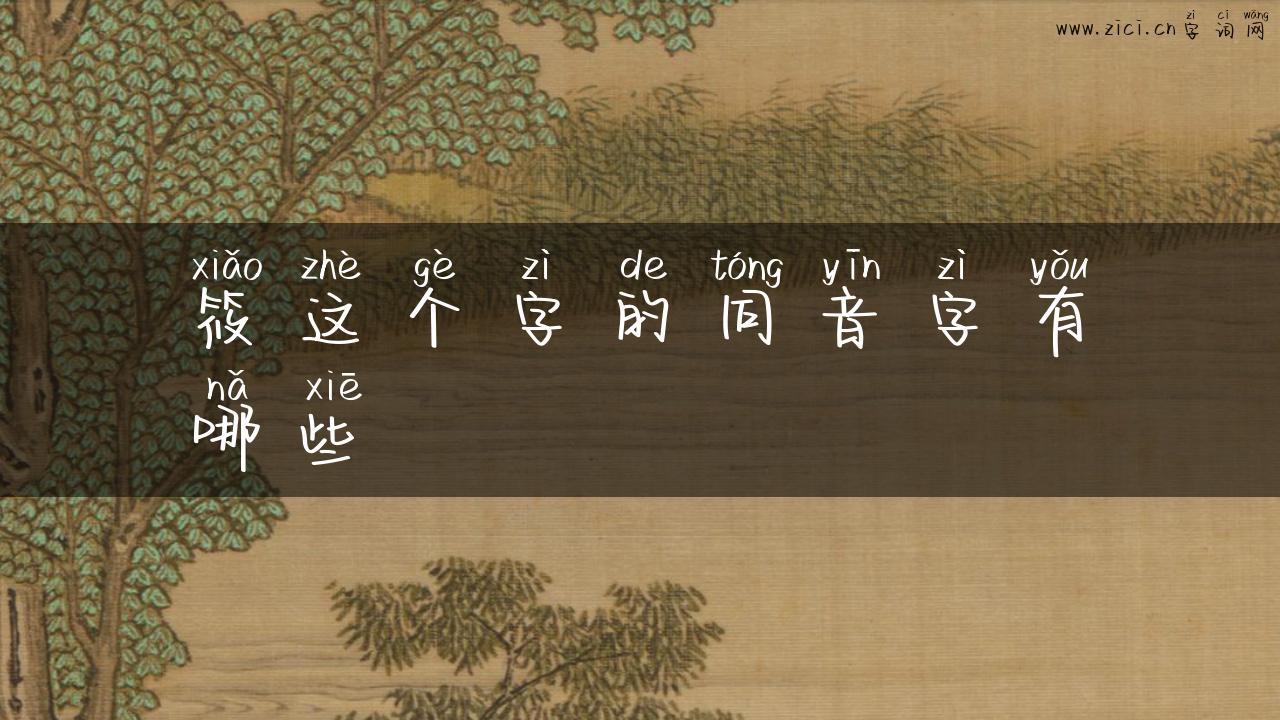 zì cí wǎng
www.zici.cn 字词网
xiǎo zhè gè zì de tóng yīn zì yǒu
筱这个字的同音字有
nǎ xiē
哪些